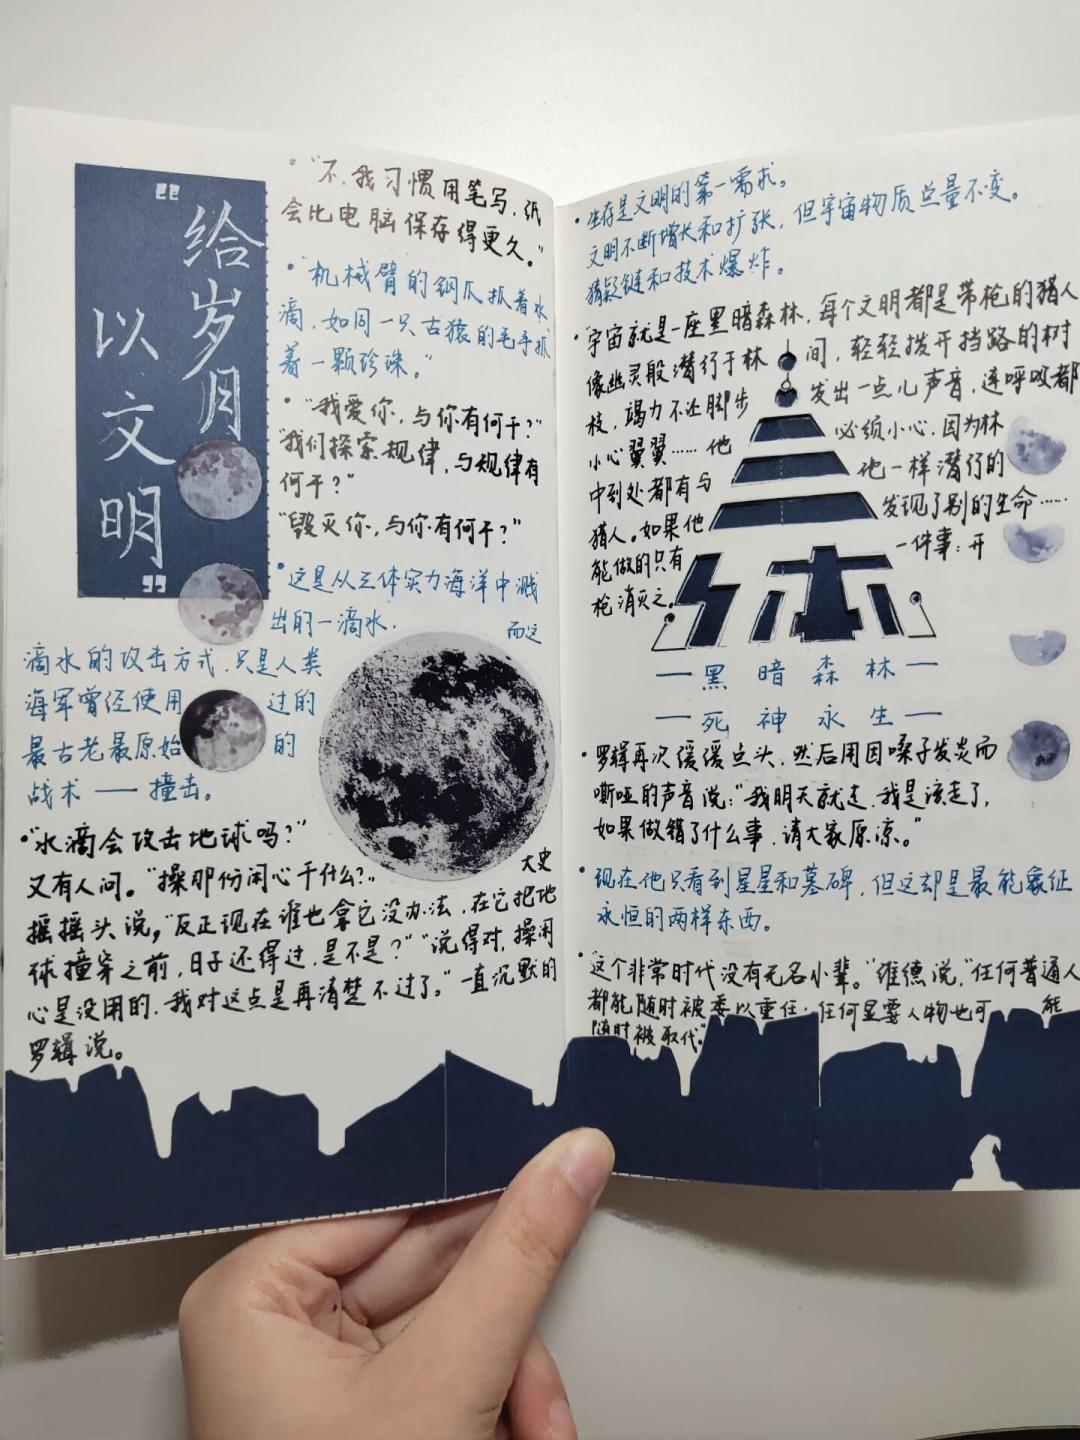 “给岁月
以文明”
“不,我习惯用笔写,纸
会比电脑保存得更久。”
·“机械臂的钢爪抓着水
滴,如同一只古猿的毛手抓
着一颗珍珠。”
·“我爱你,与你有何干?”
“我们探索规律,与规律有
何干?”
“毁灭你,与你有何干?”
·这是从三体实力海洋中溅
出的一滴水. 而这
滴水的攻击方式,只是人类
海军曾经使用过的
最古老最原始的
战术——撞击。
·“水滴会攻击地球吗?”
又有人问。“操那份闲心干什么?” 大史
摇摇头说,“反正现在谁也拿它没办法,在它把地
球撞穿之前,日子还得过,是不是?”“说得对,操闲
心是没用的,我对这点是再清楚不过了。”一直沉默的
罗辑说。
·生存是文明的第一需求。
文明不断增长和扩张,但宇宙物质总量不变。
猜疑链和技术爆炸。
·“宇宙就是一座黑暗森林,每个文明都是带枪的猎人
像幽灵般潜行于林间,轻轻拨开挡路的树
枝,竭力不让脚步发出一点儿声音,连呼吸都
小心翼翼……他必须小心,因为林
中到处都有与他一样潜行的
猎人。如果他发现了别的生命……
能做的只有一件事:开
枪消灭之。
三体
—黑暗森林—
—死神永生—
·罗辑再次缓缓点头,然后用因嗓子发炎而
嘶哑的声音说:“我明天就走,我是该走了,
如果做错了什么事,请大家原凉。”
·现在他只看到星星和墓碑,但这却是最能象征
永恒的两样东西。
·“这个非常时代没有无名小辈。”维德说,“任何普通人
都能随时被委以重任;任何显要人物也可能
随时被取代。”